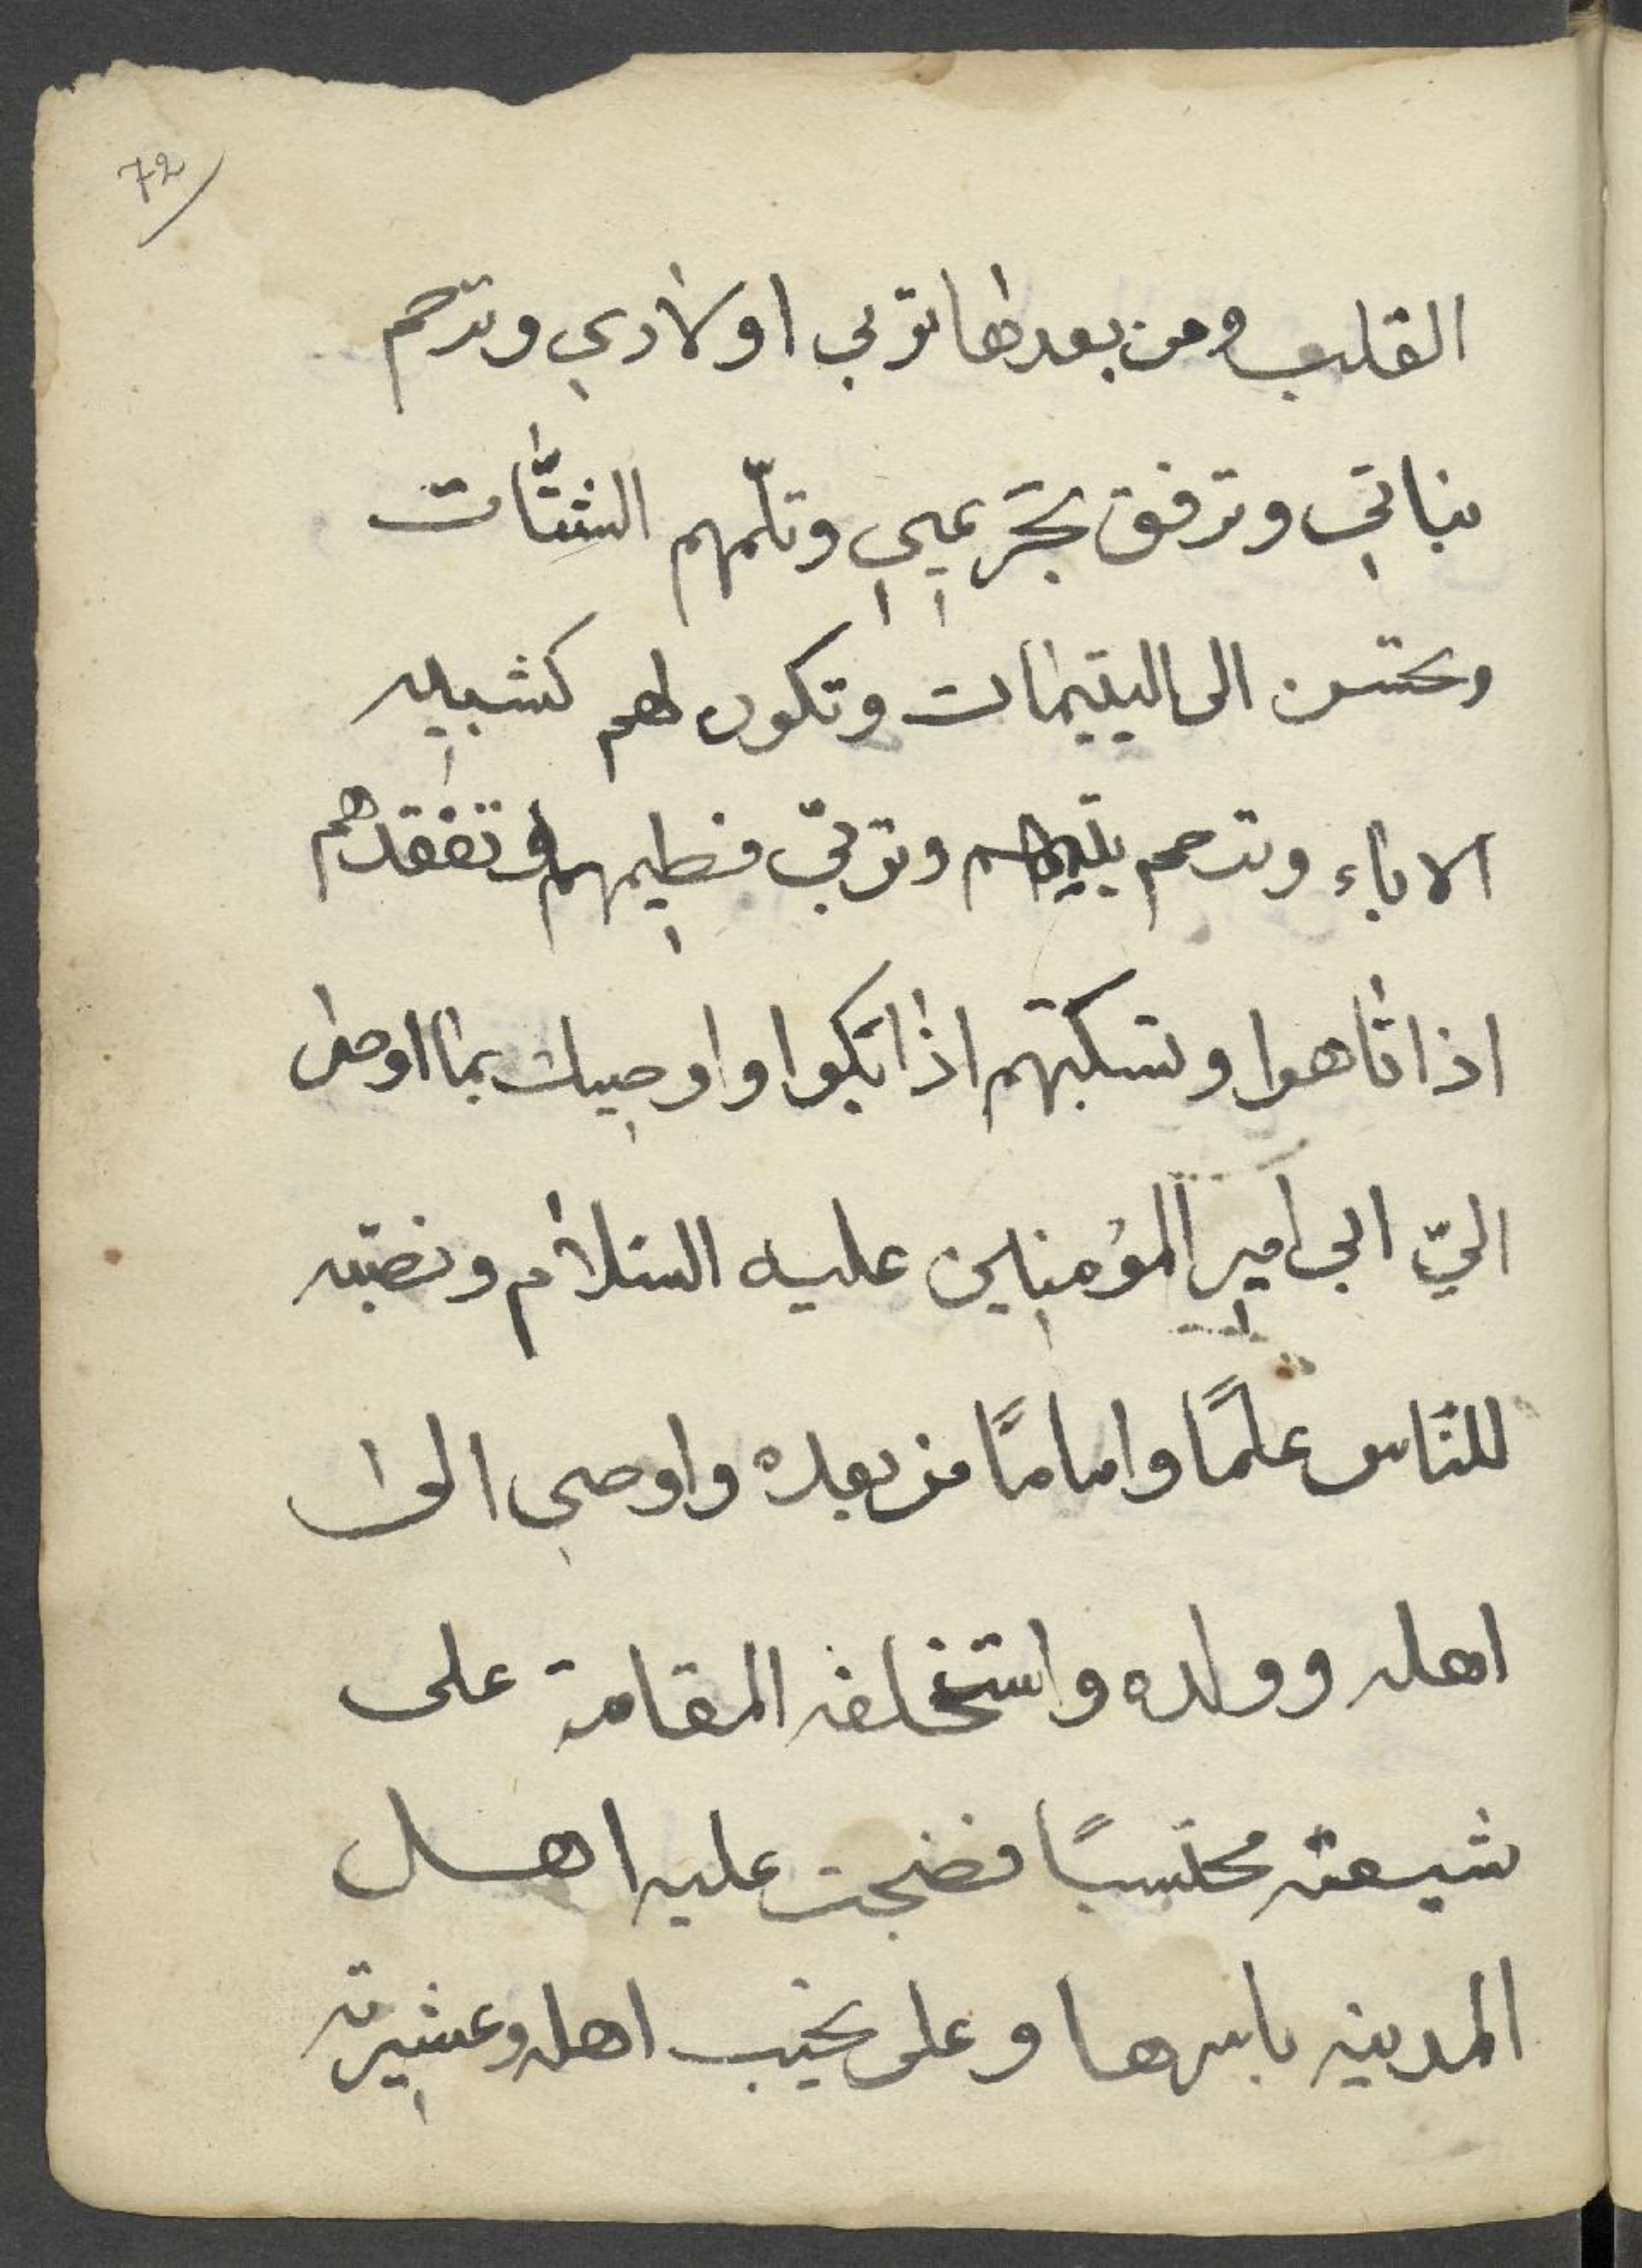 72
القلب ومن بعدها تربي اولادي وترحم
بناتي وترفق بحريمي وتلمهم الشتات
وتحسن الى اليتيمات وتكون لهم كشبيه
الاباء وترحم يتيمهم وتربي فطيمهم وتفقدهم
اذا تاهوا وتسكتهم اذا بكوا واوصيك بما اوصى
اليّ ابي امير المؤمنين عليه السلام ونصبه
للناس علمًا وامامًا من بعده واوصى الى
اهله وولده واستخلفه المقامة على
شيعته محتسبًا فضجت عليه اهل
المدينه باسرها وعلى نحيب اهله وعشيرته